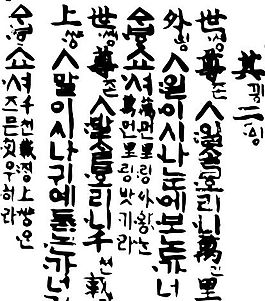 其끵二ᅀᅵᆼ
世솅尊존ㅅ일ᄉᆞᆯᄫᅩ리니萬먼里
外욍ㅅ일이시나눈에보논가너
ᄫᆞ쇼셔萬먼里링外욍ᄂᆞᆫ
萬먼里링밧기라
世솅尊존ㅅ말ᄉᆞᆯᄫᅩ리니千천載
上쌍ㅅ말이시나귀예듣논가너
ᄫᆞ쇼셔千천載ᄌᆡᆼ上쌍ᄋᆞᆫ
즈믄ᄒᆡ우히라